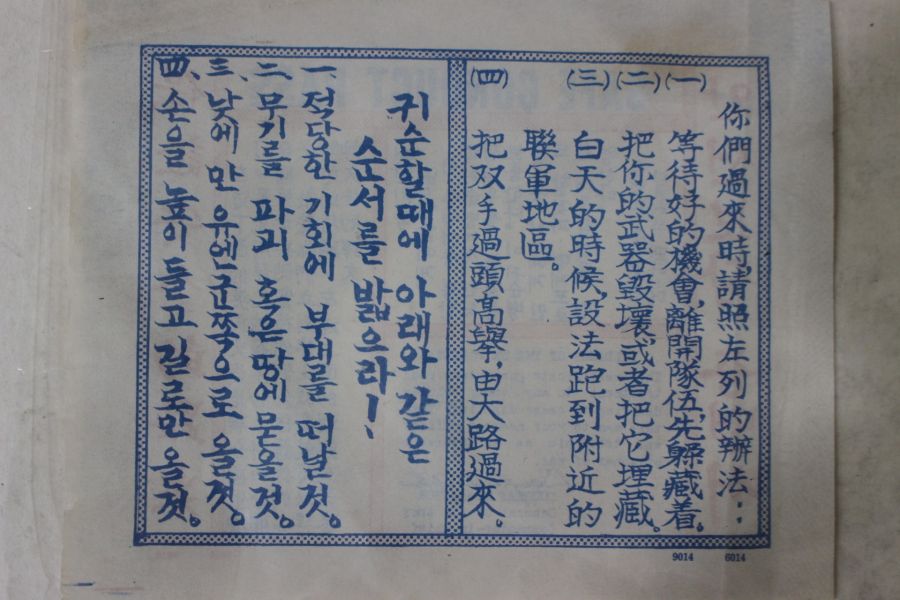 你們過來時,請照左列的辦法:
(一) 等待好的機會,離開隊伍,先躱藏着。
(二) 把你的武器毀壞或者把它埋藏。
(三) 白天的時候,設法跑到附近的
聯軍地區。
(四) 把双手過頭高舉,由大路過來。
귀순할때에 아래와 같은
순서를 밟으라!
一、적당한 기회에 부대를 떠날것。
二、무기를 파괴 혹은 땅에 묻을것。
三、낮에만 유엔군쪽으로 올것。
四、손을 높이 들고 길로만 올것。
9014 6014